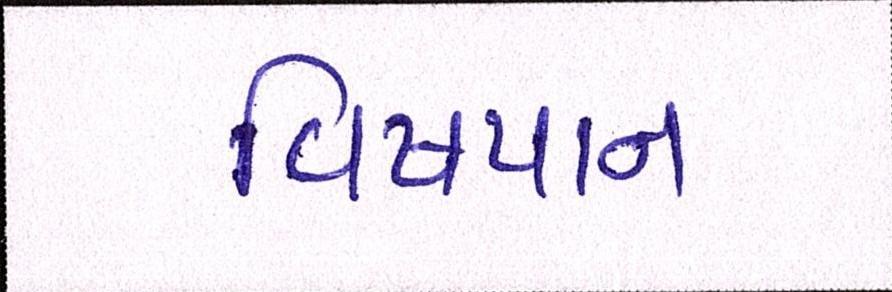 વિષપાન